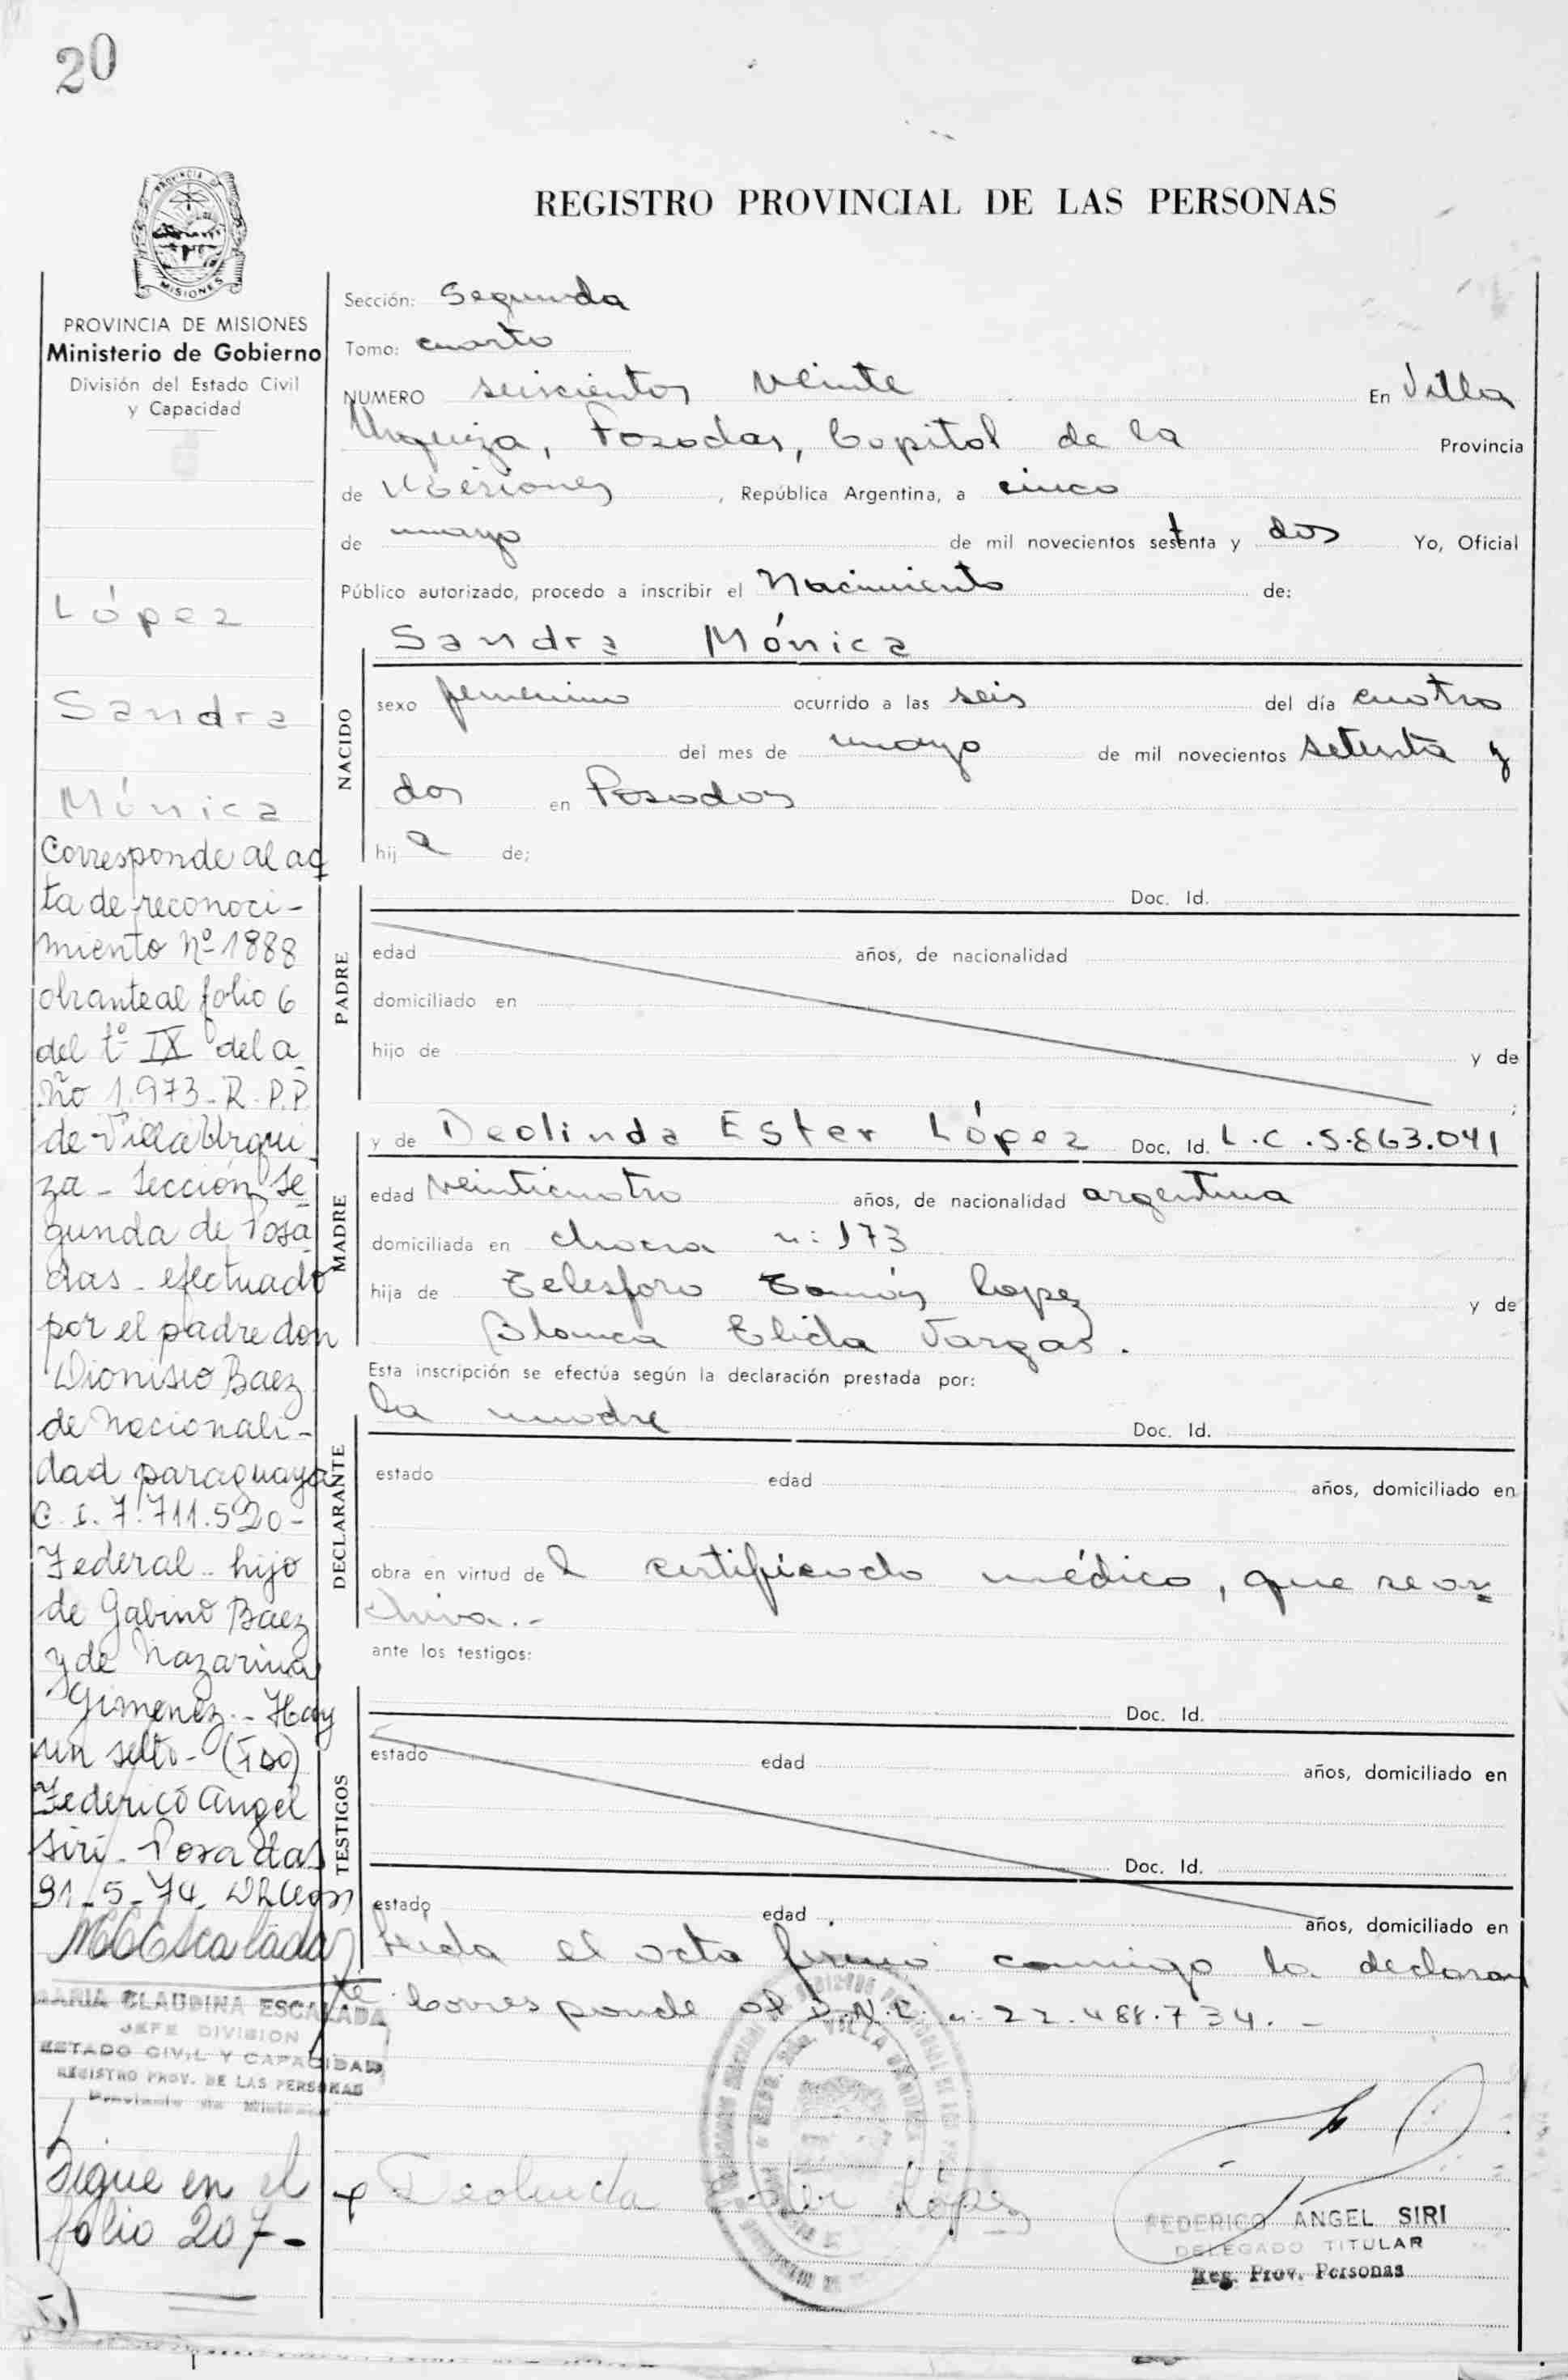 20
PROVINCIA DE
MISIONES
REGISTRO PROVINCIAL DE LAS PERSONAS
PROVINCIA DE MISIONES
Ministerio de Gobierno
División del Estado Civil
y Capacidad
López
Sandra
Mónica
Corresponde al ac
ta de reconoci-
miento Nº 1888
obrante al folio 6
del tº IX del a
ño 1.973 - R.P.P.
de Villa Urqui
za - Sección Se
gunda de Posa
das - efectuado
por el padre don
Dionisio Baez
de Nacionali-
dad paraguaya
C.I. 7.711.520-
Federal - hijo
de Gabino Baez
y de Nazarina
Gimenez.- Hay
un sello - (Fdo)
Federico Angel
Siri - Posadas
31-5-74
MCEscalada
MARIA CLAUDINA ESCALADA
JEFE DIVISION
ESTADO CIVIL Y CAPACIDAD
REGISTRO PROV. DE LAS PERSONAS
Provincia de Misiones
Sigue en el
folio 207-
Sección: Segunda
Tomo: cuarto
NUMERO seiscientos veinte En Villa
Urquiza, Posadas, Capital de la Provincia
de Misiones, República Argentina, a cinco
de mayo de mil novecientos setenta y dos Yo, Oficial
Público autorizado, procedo a inscribir el Nacimiento de:
Sandra Mónica
NACIDO
sexo femenino ocurrido a las seis del día cuatro
del mes de mayo de mil novecientos setenta y
dos en Posadas
hija de;
PADRE
Doc. Id.
edad años, de nacionalidad
domiciliado en
hijo de y de
;
MADRE
y de Deolinda Ester López Doc. Id. L.C.5.863.041
edad veinticuatro años, de nacionalidad argentina
domiciliada en chacra n: 173
hija de Telesforo Tomás Lopez y de
Blanca Elida Vargas.
Esta inscripción se efectúa según la declaración prestada por:
DECLARANTE
la madre Doc. Id.
estado edad años, domiciliado en
obra en virtud del certificado médico, que se ar=
chiva.-
ante los testigos:
TESTIGOS
Doc. Id.
estado edad años, domiciliado en
Doc. Id.
estado edad años, domiciliado en
Leida el acta firmó conmigo la declaran
te. Corresponde al D.N.I. n: 22.488.734.-
Deolinda Ester López
FEDERICO ANGEL SIRI
DELEGADO TITULAR
Reg. Prov. Personas